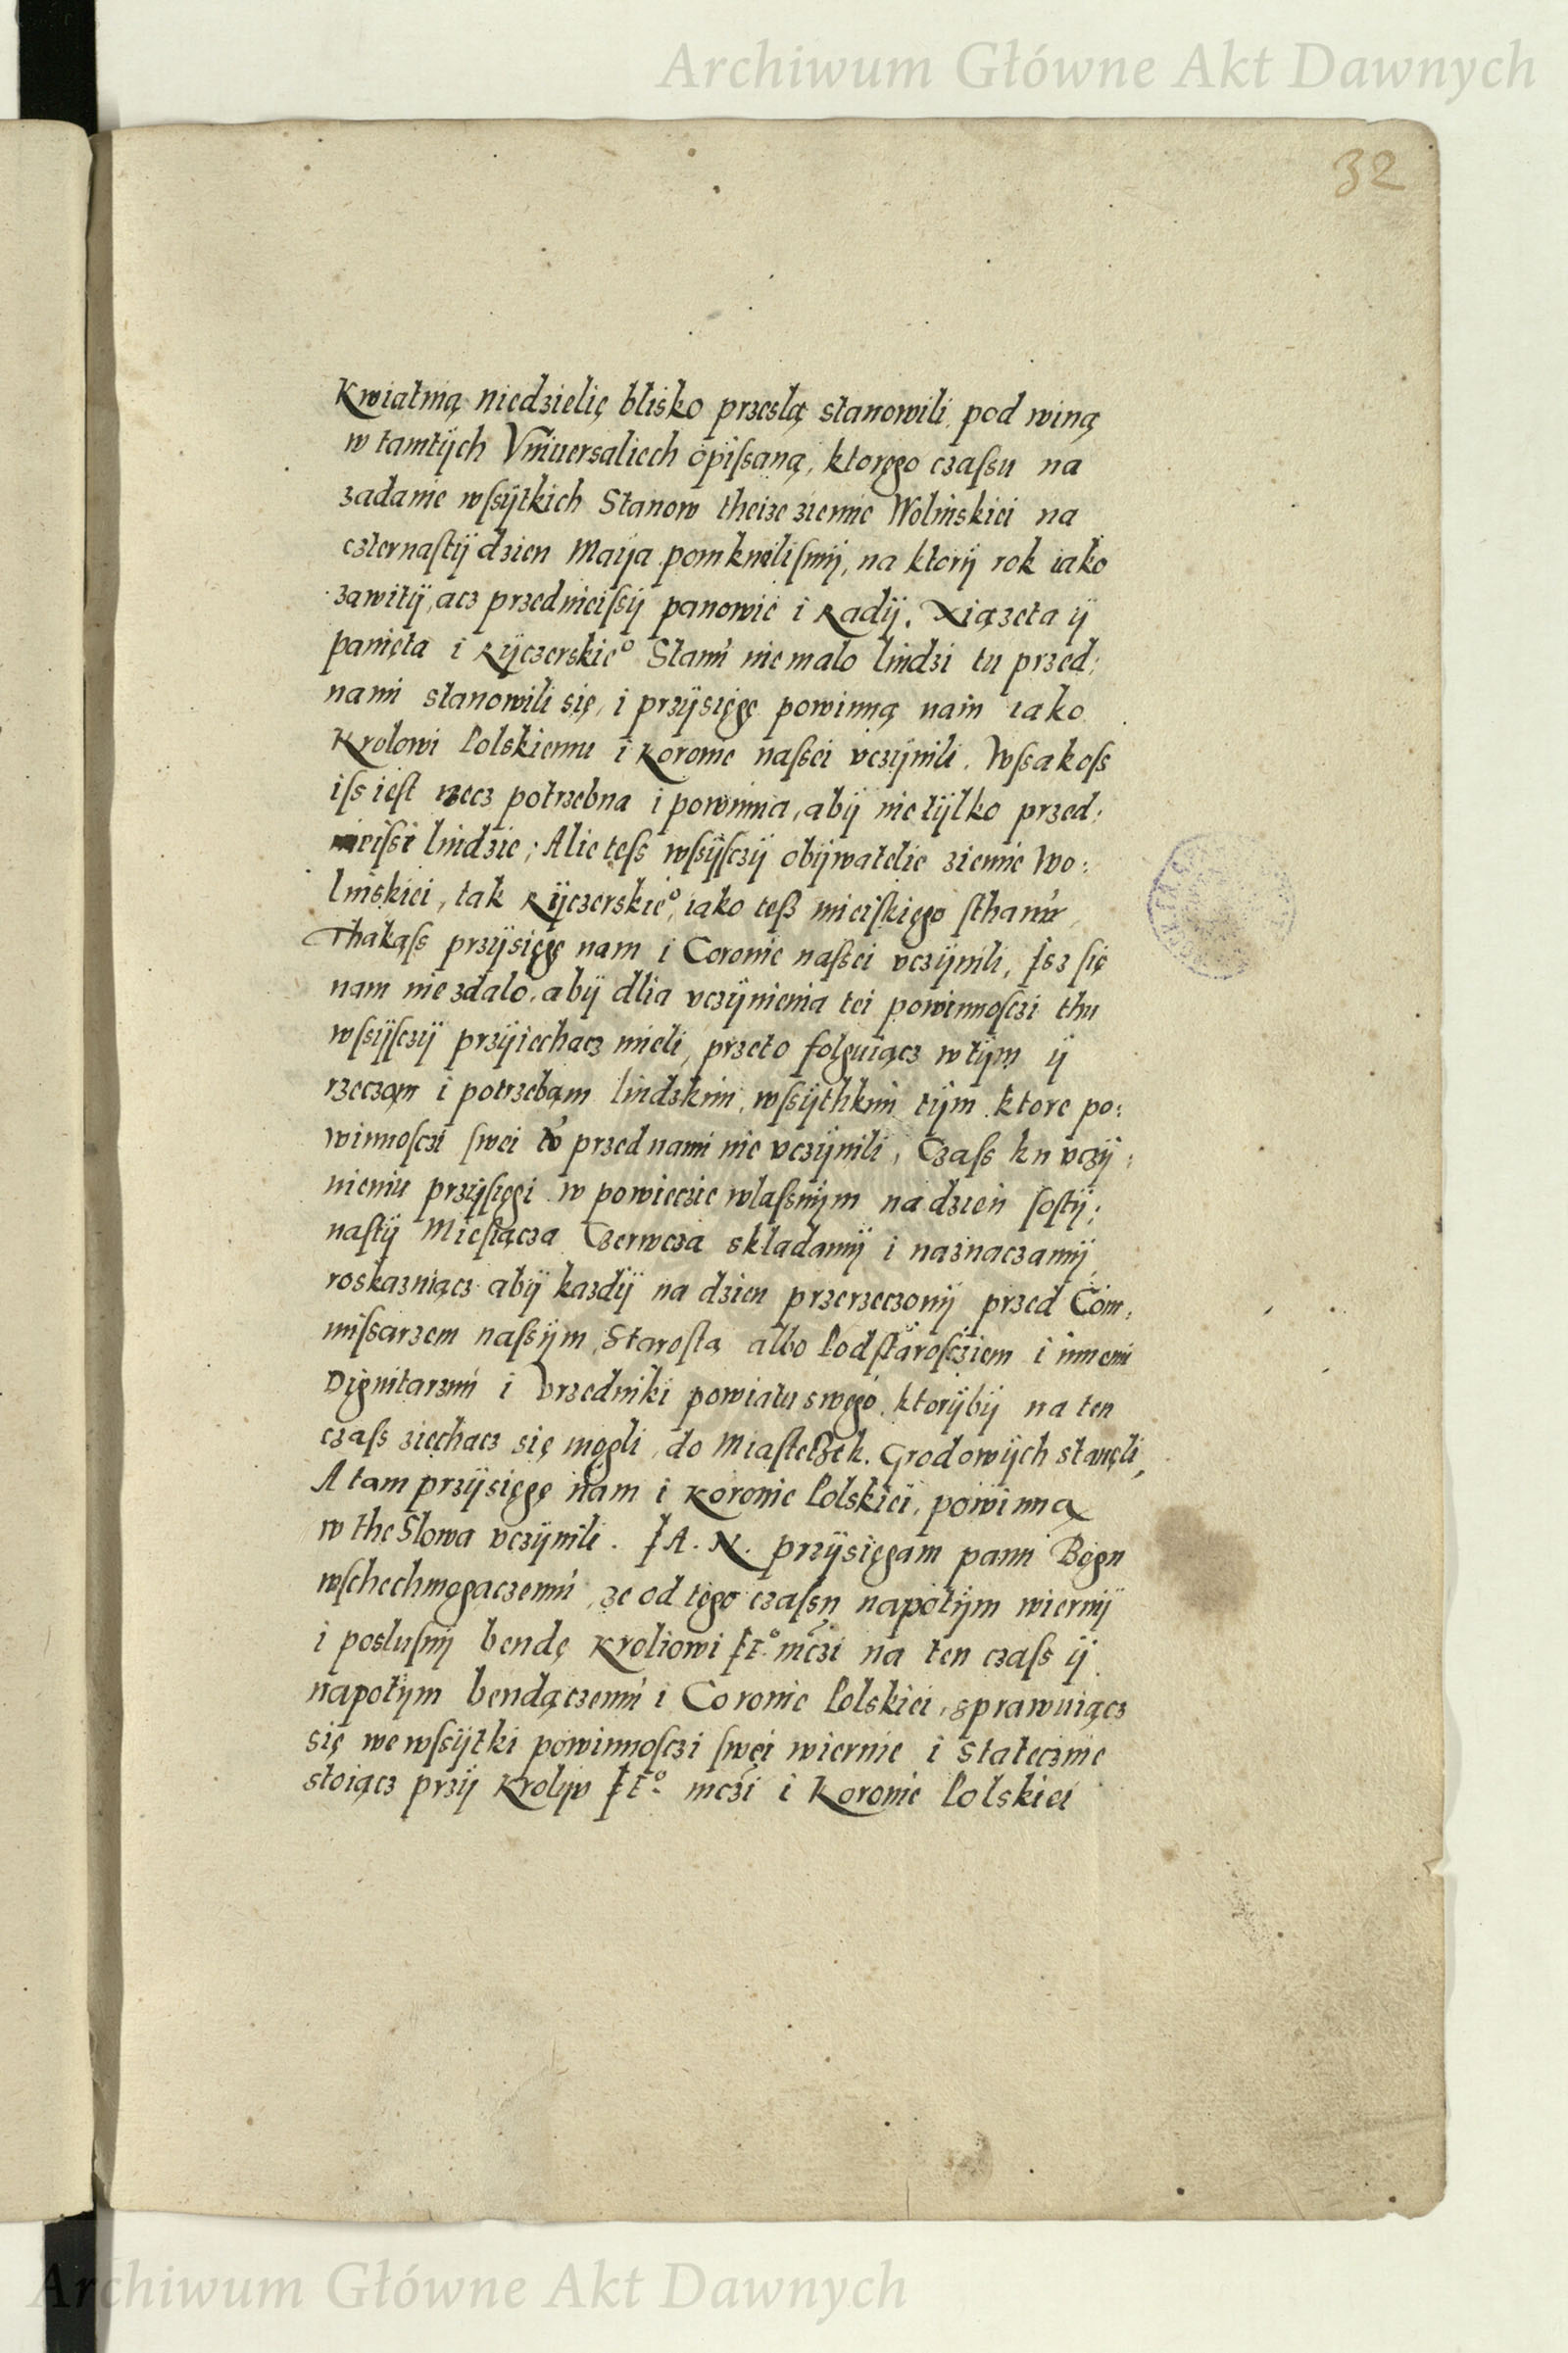 Archiwum Główne Akt Dawnych
32
Kwiatnią niedzielię blisko przeslą stanowili pod winą
w tamtÿch Vniuersaliech opiſsaną, ktorego czaſsu na
zadanie wſsÿtkich Stanow theize ziemie Wolinskiei na
czternaſtÿ dzien Maÿa pomkneliſmÿ, na ktorÿ rok iako
zawitÿ, acz przednieiſsÿ panowie i Radÿ, Xiązeta ÿ
panięta i Rÿczerskieº Stanu nie malo liudzi tu przed:
nami stanowili się, i przÿsięgę powinną nam iako
Krolowi Polskiemu i Koronie naſsei vczÿnili. Wſsakoſs
iſs ieſt rzecz potrzebna i powinna, abÿ nie tÿlko przed:
nieiſsi liudzie; Alie teſs wſsÿſczÿ obÿwatelie ziemie Wo:
linskiei, tak Rÿczerskieº, iako teß mieiſkiego ſthanu
Thakąſs przÿsięgę nam i Coronie naſsei vczÿnili, Isz ſię
nam nie zdalo, abÿ dlia vczÿnienia tei powinnoſczi thu
wſsÿſczÿ przÿiechacz mieli, przeto folguiącz w tÿm ÿ
rzeczam i potrzebam liudzkim, wſsÿthkim tÿm ktore po:
winnoſczi ſwei tu przed nami nie vczÿnili, Czaſs ku vczÿ:
nieniu przÿſięgi w powieczie wlaſsnÿm na dzien ſoſtÿ:
naſtÿ Mieſiącza Czerwcza skladamÿ i naznaczamÿ,
roskazuiącz abÿ kazdÿ na dzien przerzeczonÿ przed Com:
miſsarzem naſsÿm, Staroſtą albo Podſtaroſcziem i innemi
Dignitarzmi i Vrzedniki powiatu swego, ktorÿbÿ na ten
czaſs ziechacz się mogli, do Miaſteczek Grodowÿch stanęli,
A tam przÿsięgę nam i Koronie Polskiei, powinną
w the Slowa vczÿnili. IA. N. przÿsięgam panu Bogu
wſchechmogaczemu, ze od tego czaſsu napotÿm wiernÿ
i posluſnÿ bendę Kroliowi Iº mczi na ten czaſs ÿ
napotÿm bendączemu i Coronie Polskiei, sprawuiącz
się we wſsÿtki powinnoſczi ſwei wiernie i Statecznie
stoiącz przÿ Kroliu Iº mczi i Koronie Polskiei
Archiwum Główne Akt Dawnych